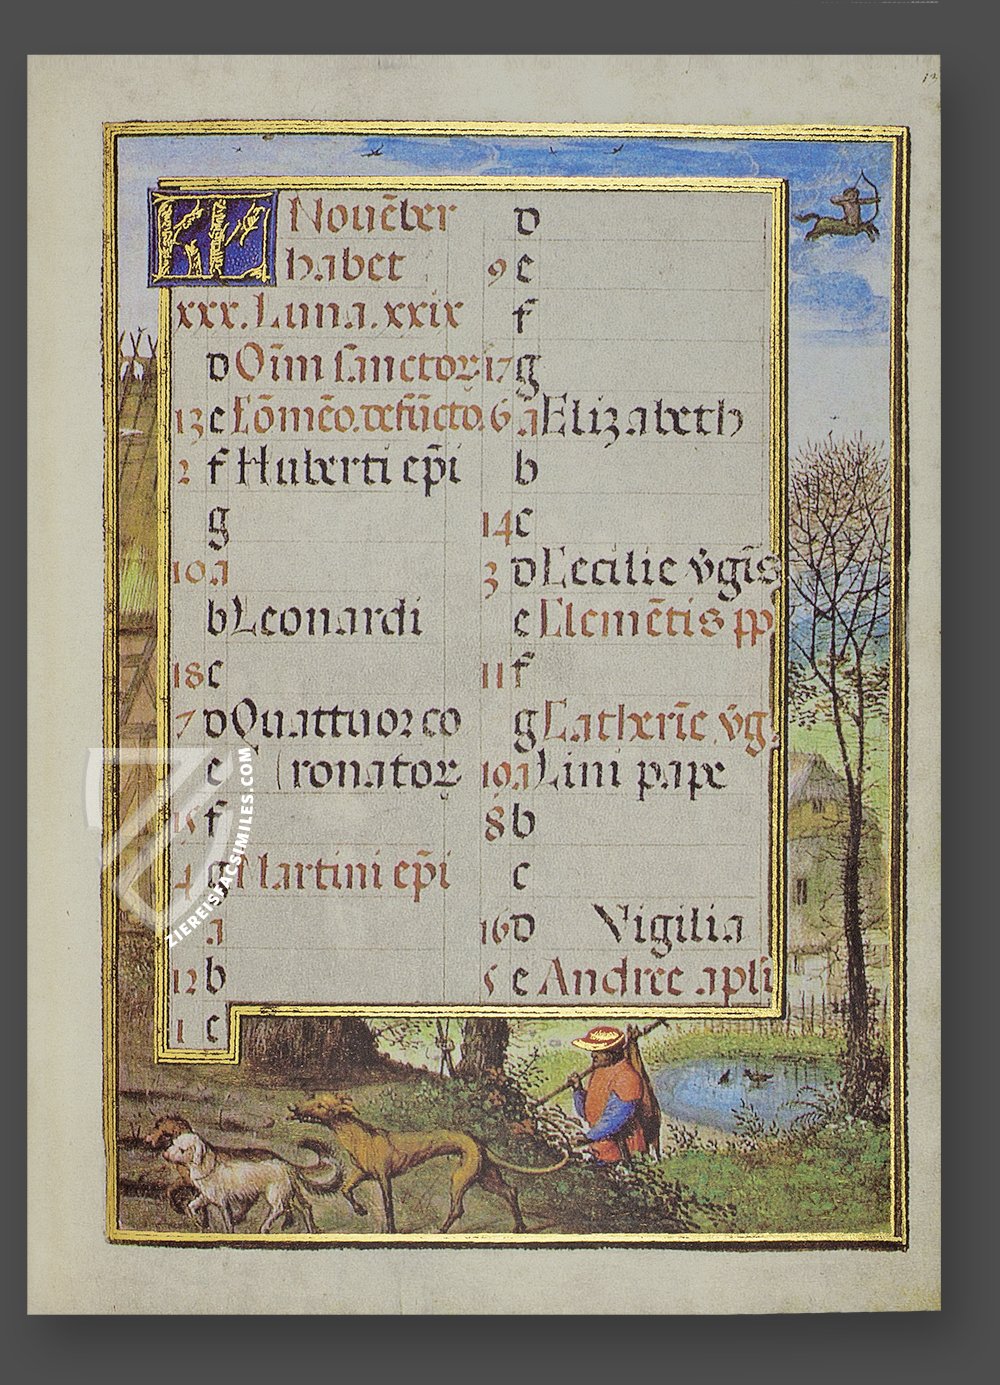 13
KL Nouēber
habet
xxx. Luna. xxix
d Oīm sanctorꝝ
13 e Cōmēo. defūcto.
2 f Huberti ep̄i
g
10 a
b Leonardi
18 c
7 d Quattuor co
e (ronatorꝝ
15 f
4 g Martini ep̄i
a
12 b
1 c
d
9 e
f
17 g
6 a Elizabeth
b
14 c
3 d Cecilie v̄gīs
e Clemētis pp
11 f
g Catherīe v̄g
19 a Lini pape
8 b
c
16 d Vigilia
5 e Andree apl̄i
ZIEREISFACSIMILES.COM